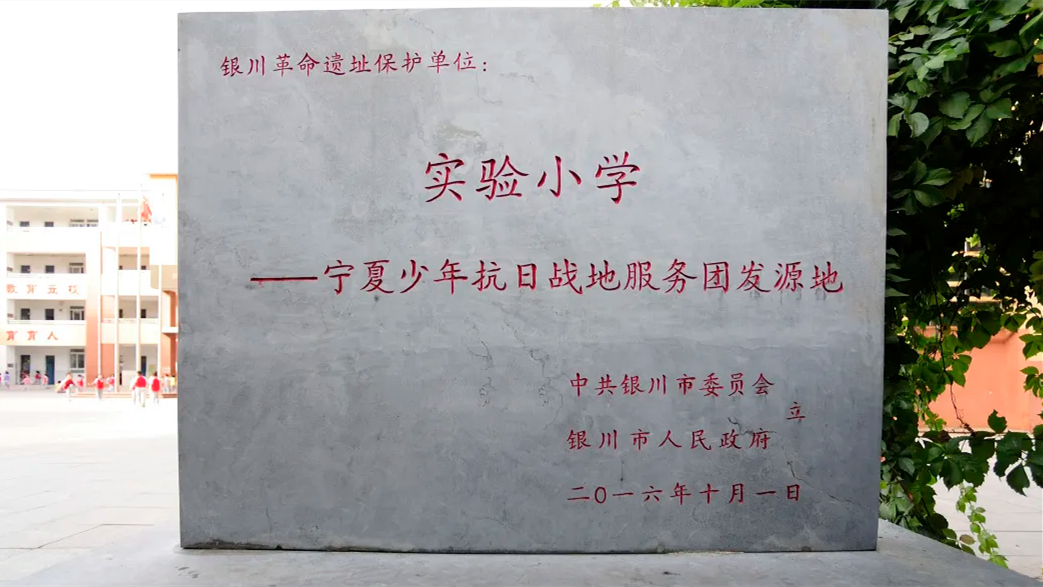 银川革命遗址保护单位：
实验小学
——宁夏少年抗日战地服务团发源地
中共银川市委员会
立
银川市人民政府
二〇一六年十月一日
教育立校
育人